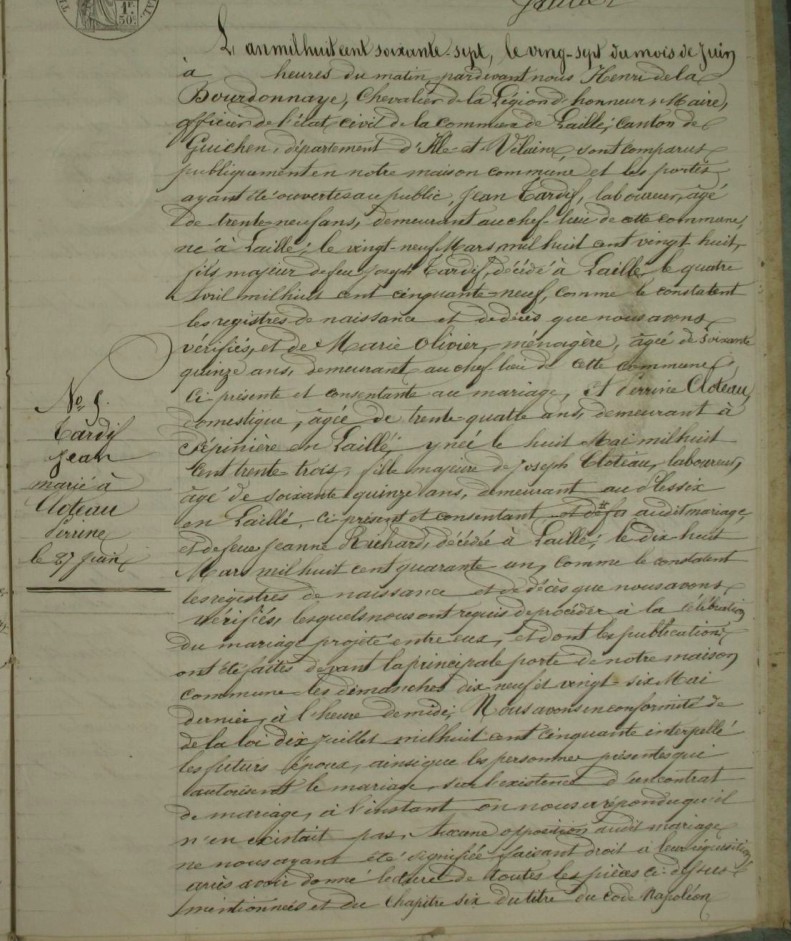 1F.
50c
L'an mil huit cent soixante-sept, le vingt-sept du mois de Juin
à heures du matin, par devant nous Henri de la
Bourdonnaye, Chevalier de la Légion d'honneur, Maire,
officier de l'état civil de la commune de Laillé, Canton de
Guichen, département d'Ille-et-Vilaine, sont comparus
publiquement en notre maison commune et les portes
ayant été ouvertes au public, Jean Tardif, laboureur, âgé
de trente-neuf ans, demeurant au chef-lieu de cette commune,
né à Laillé, le vingt-neuf Mars mil huit cent vingt huit,
fils majeur de feu Joseph Tardif, décédé à Laillé, le quatre
Avril mil huit cent cinquante-neuf, comme le constatent
les registres de naissance et de décès que nous avons
vérifiés, et de Marie Olivier, ménagère, âgée de soixante
quinze ans, demeurant au chef lieu de cette commune,
ci-présente et consentante au mariage, Et Perrine Cloteau,
domestique, âgée de trente-quatre ans, demeurant à
Pépinière en Laillé, y née le huit Mai mil huit
cent trente-trois, fille majeure de Joseph Cloteau, laboureur,
âgé de soixante quinze ans, demeurant au
en Laillé, ci-présent et consentant au dit mariage,
et de feue Jeanne Richard, décédée à Laillé, le dix huit
Mars mil huit cent quarante un, comme le constatent
les registres de naissance et de décès que nous avons
vérifiés, lesquels nous ont requis de procéder à la célébration
du mariage projeté entre eux, et dont les publications
ont été faites devant la principale porte de notre maison
commune les dimanches dix neuf et vingt-six Mai
dernier, à l'heure de midi; Nous avons en conformité de
de la loi dix Juillet mil huit cent cinquante interpellé
les futurs époux, ainsi que les personnes présentes qui
autorisent le mariage, sur l'existence d'un contrat
de mariage, à l'instant on nous a répondu qu'il
n'en existait pas, Aucune opposition audit mariage
ne nous ayant été signifiée, faisant droit à leur réquisition,
après avoir donné lecture de toutes les pièces ci-dessus
mentionnées et du Chapitre six du titre du code Napoléon
No 5.
Tardif
Jean
marié à
Cloteau
Perrine
le 27 Juin